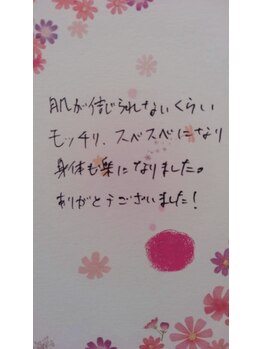 肌が信じられないくらい
モッチリ、スベスベになり
身体も楽になりました。
ありがとうございました!